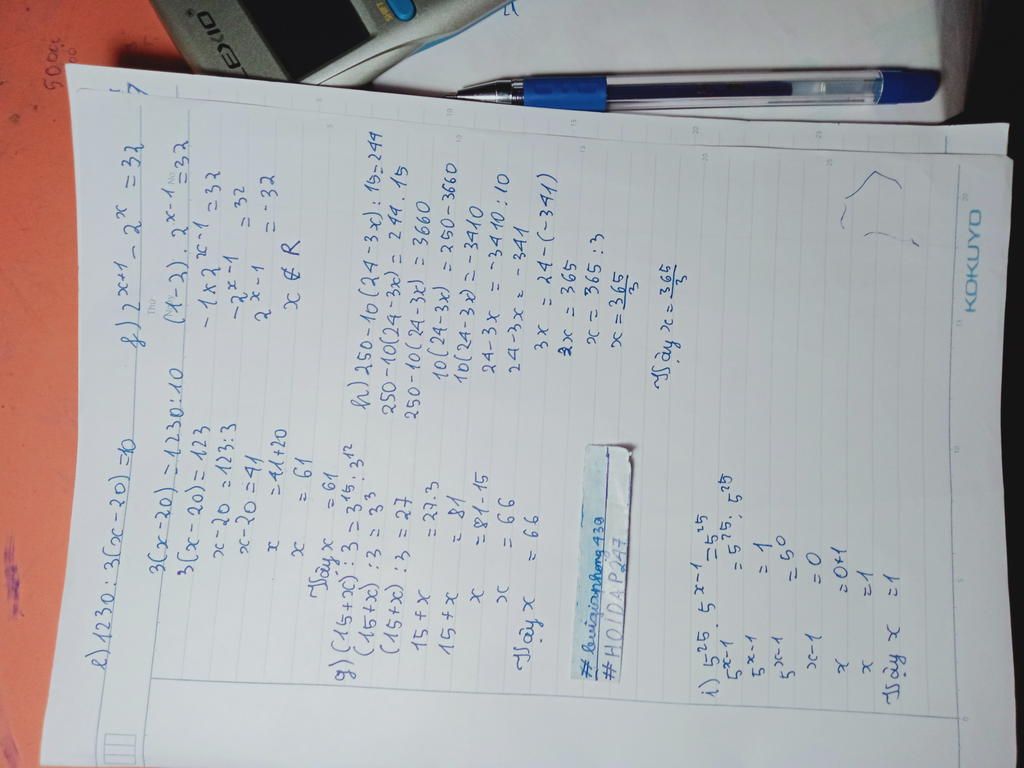 e) 1230 : 3(x-20) = 10
3(x-20) = 1230:10
3(x-20) = 123
x-20 = 123:3
x-20 = 41
x = 41+20
x = 61
Vậy x = 61
f) 2^{x+1} - 2^x = 32
(1-2).2^{x-1} = 32
-1×2^{x-1} = 32
-2^{x-1} = 32
2^{x-1} = -32
x ∉ R
g) (15+x) : 3 = 3^{15} : 3^{12}
(15+x) : 3 = 3^3
(15+x) : 3 = 27
15+x = 27.3
15+x = 81
x = 81-15
x = 66
Vậy x = 66
h) 250-10(24-3x) : 15=244
250-10(24-3x) = 244.15
250-10(24-3x) = 3660
10(24-3x) = 250-3660
10(24-3x) = -3410
24-3x = -3410:10
24-3x = -341
3x = 24-(-341)
3x = 365
x = 365:3
x = 365/3
Vậy x = 365/3
#HOIDAP247
i) 5^{25}.5^{x-1} = 5^{25}
5^{x-1} = 5^{25}:5^{25}
5^{x-1} = 1
5^{x-1} = 5^0
x-1 = 0
x = 0+1
x = 1
Vậy x = 1
KOKUYO